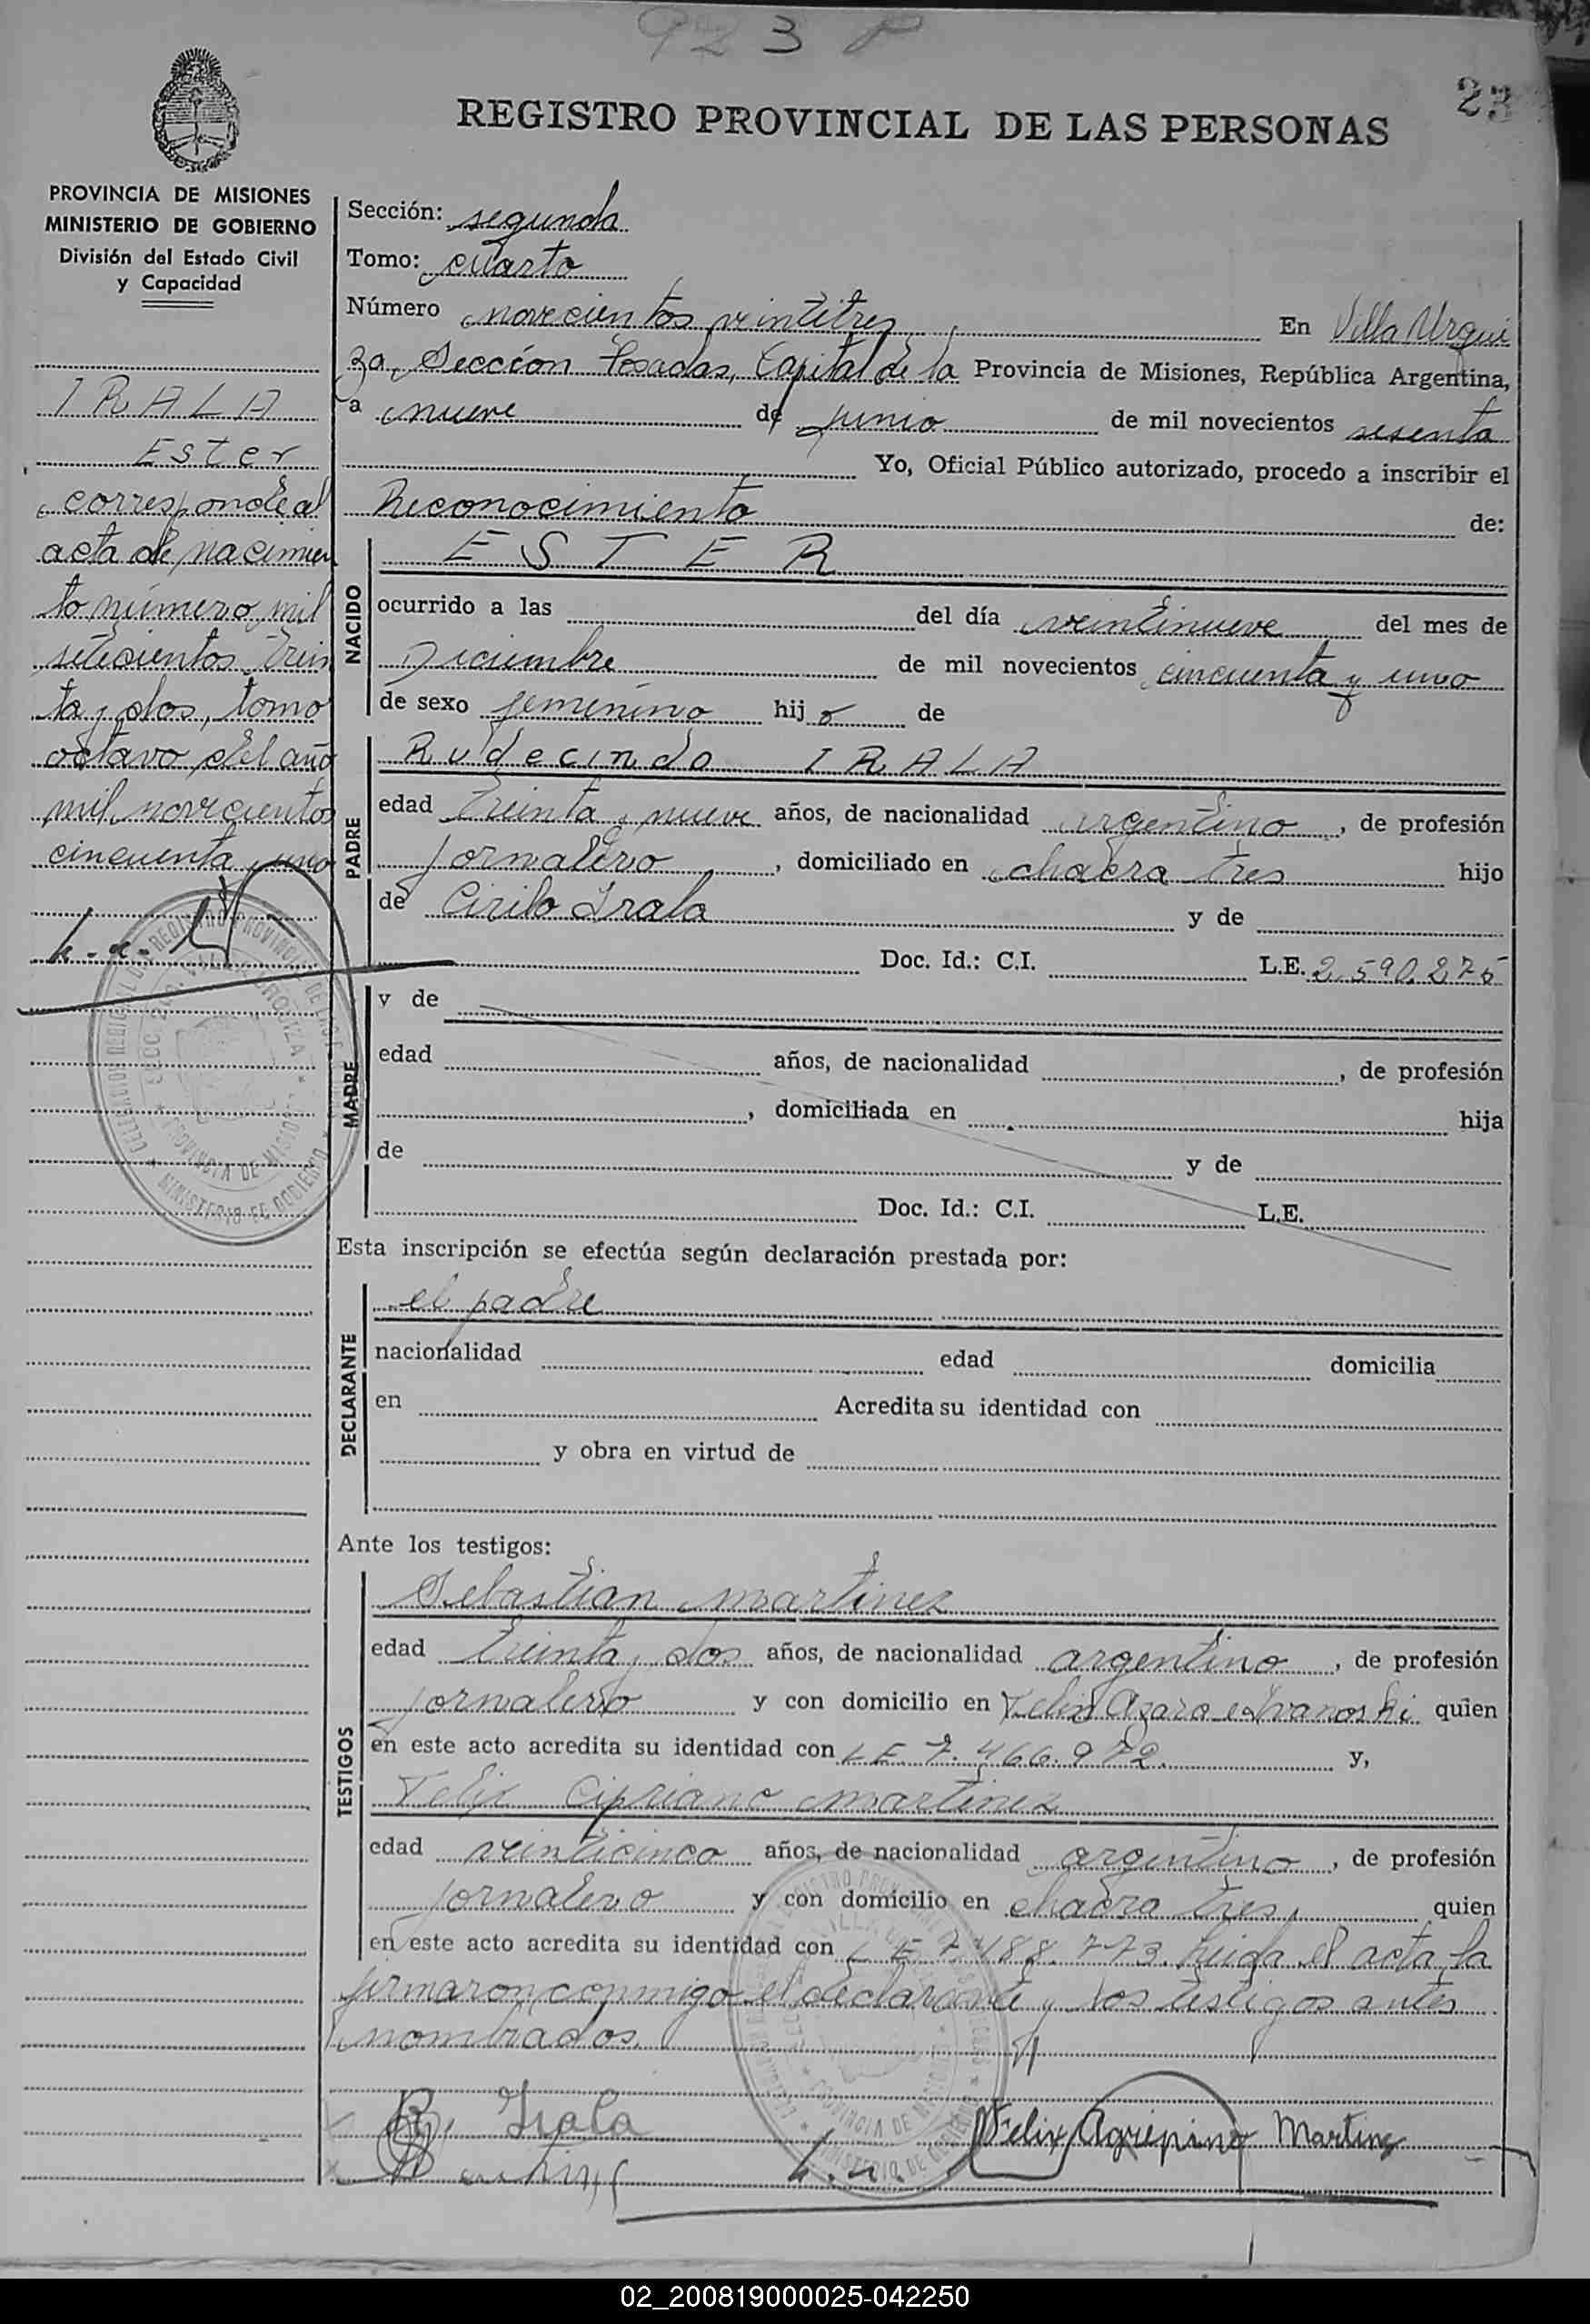 923
23
REGISTRO PROVINCIAL DE LAS PERSONAS
PROVINCIA DE MISIONES
MINISTERIO DE GOBIERNO
División del Estado Civil
y Capacidad
IRALA
Ester
corresponde al
acta de nacimien
to número mil
setecientos trein
ta y dos, tomo
octavo del año
mil novecientos
cincuenta y uno
Sección: segunda
Tomo: cuarto
Número novecientos veintitres En Villa Urqui
za, Sección Posadas, Capital de la Provincia de Misiones, República Argentina,
a nueve de junio de mil novecientos sesenta
Yo, Oficial Público autorizado, procedo a inscribir el
Reconocimiento de:
NACIDO
ESTER
ocurrido a las del día veintinueve del mes de
Diciembre de mil novecientos cincuenta y uno
de sexo femenino hij o de
PADRE
Rudecindo IRALA
edad treinta y nueve años, de nacionalidad argentino, de profesión
jornalero, domiciliado en chacra tres hijo
de Cirilo Irala y de
Doc. Id.: C.I. L.E. 2.590.275
MADRE
y de
edad años, de nacionalidad , de profesión
, domiciliada en hija
de y de
Doc. Id.: C.I. L.E.
Esta inscripción se efectúa según declaración prestada por:
DECLARANTE
el padre
nacionalidad edad domicilia
en Acredita su identidad con
y obra en virtud de
Ante los testigos:
TESTIGOS
Sebastian Martinez
edad treinta y dos años, de nacionalidad argentino, de profesión
jornalero y con domicilio en Felix Azara e Ivanoski quien
en este acto acredita su identidad con LE 7.466.972. y,
Felix Cipriano Martinez
edad veinticinco años, de nacionalidad argentino, de profesión
jornalero y con domicilio en chacra tres, quien
en este acto acredita su identidad con LE 7.488.773. Leida el acta la
firmaron conmigo el declarante y los testigos antes
nombrados.
R. Irala
Felix Agripino Martinez
02_200819000025-042250